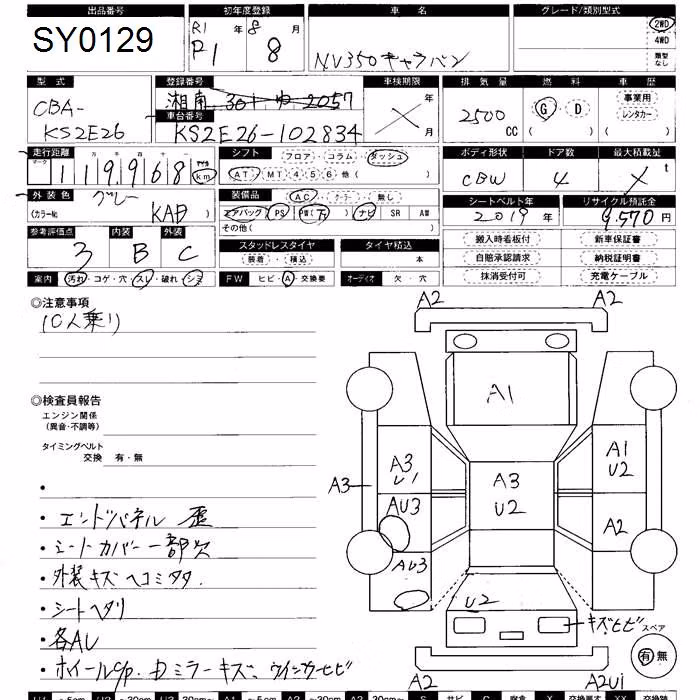 出品番号 初年度登録 車名 グレード/類別型式
SY0129 R1 年 8 月 2WD
R1 8 NV350キャラバン 4WD
類型なし
型式 登録番号 車検期限 排気量 燃料 車歴
CBA- 湘南 301 ゆ 2057 年 2500 G・D 事業用
車台番号 レンタカー
KS2E26 KS2E26-102834 月 CC ( ) ( )
走行距離 シフト フロア・コラム・ダッシュ ボディ形状 ドア数 最大積載量
119968 km AT・MT 4 5 6 他( ) CBW 4 t
外装色 グレー 装備品 AC・クーラー・無し シートベルト年 リサイクル預託金
(カラーNo. KAD ) エアバッグ PS PW(万) ナビ SR AW 2019 年 9,570 円
その他( )
参考評価点 内装 外装 スタッドレスタイヤ タイヤ積込 搬入時看板付 新車保証書
3 B C 装着・積込 本 自賠承認請求 納税証明書
案内 汚れ・コゲ・穴・スレ・破れ・シミ FW ヒビ・A・交換要 オーディオ 欠・穴 抹消受付可 充電ケーブル
◎注意事項
10人乗り
◎検査員報告
エンジン関係
(異音・不調等)
タイミングベルト
交換 有・無
・
・エンドパネル 歪
・シートカバー一部欠
・外装キズヘコミタタ.
・シートヘタリ
・各AU
・ホイールC/P. ドミラーキズ、ウインカーヒビ
A2 A2
A1
A3 U1 A3 U2 A1 U2
A3 AU3 A2
AU3 U2
キズヒビ スペア
有 無
A2 A2U1